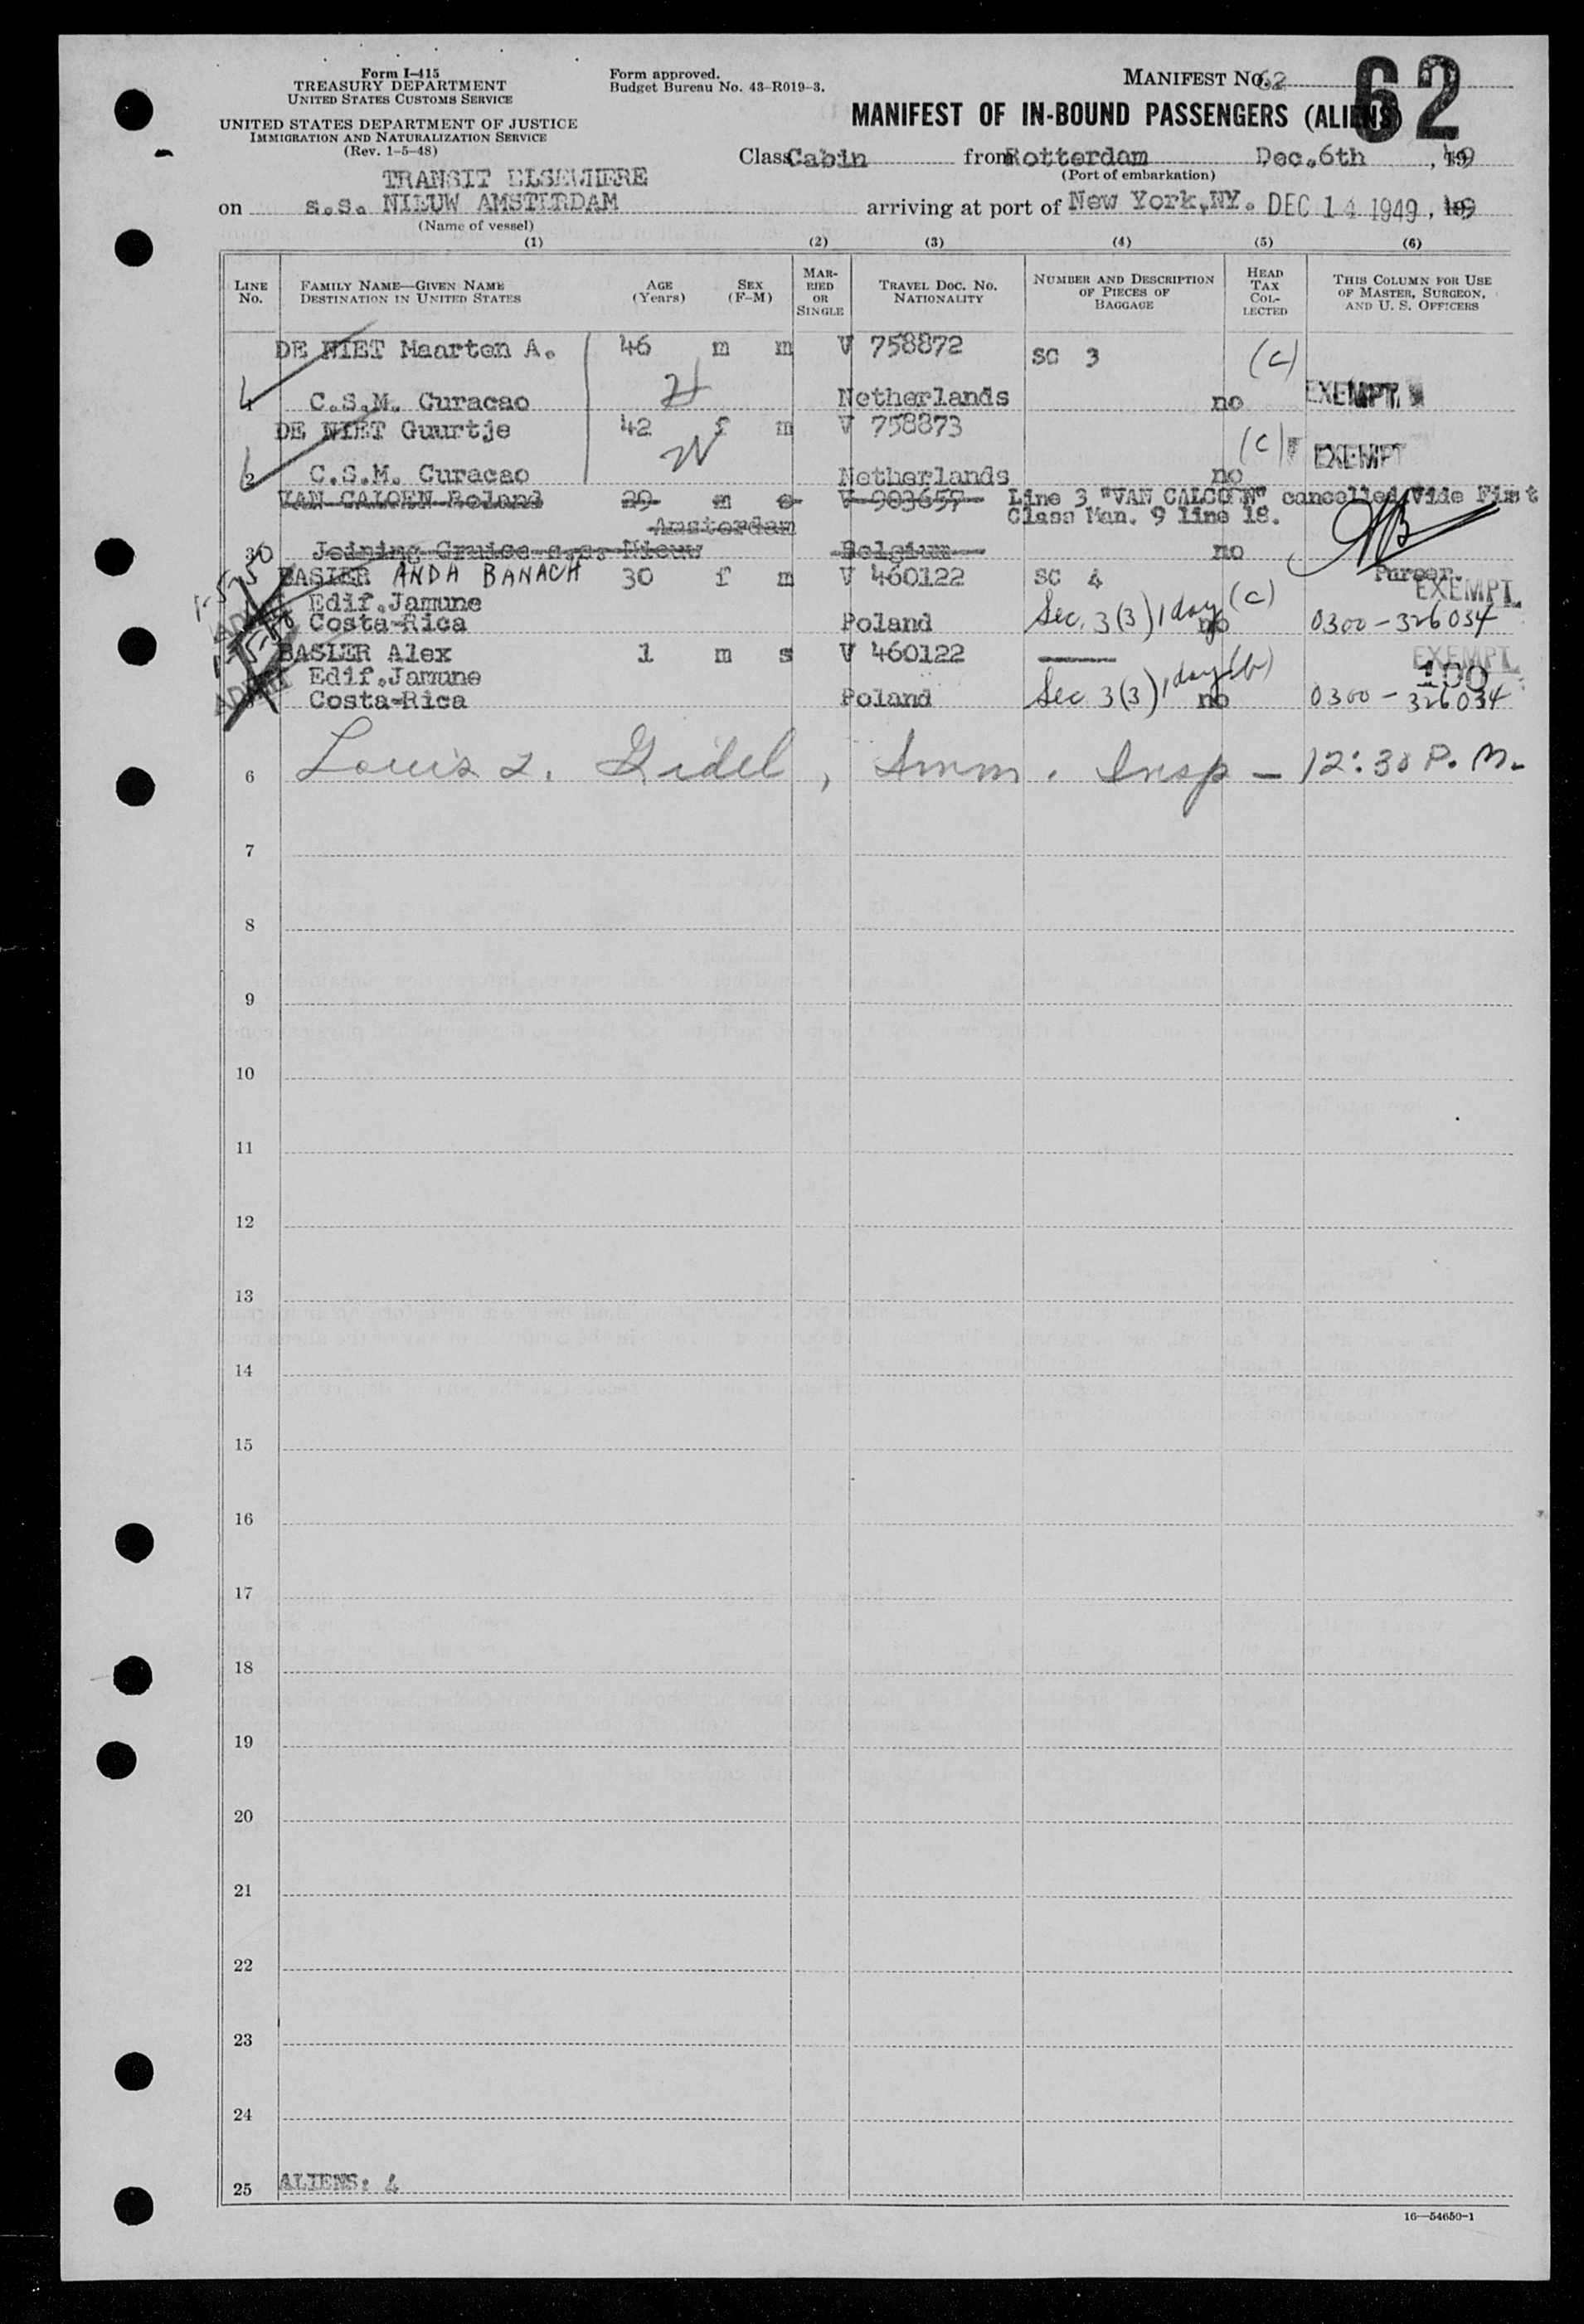 Form I-415
TREASURY DEPARTMENT
UNITED STATES CUSTOMS SERVICE
UNITED STATES DEPARTMENT OF JUSTICE
IMMIGRATION AND NATURALIZATION SERVICE
(Rev. 1-5-48)
Form approved.
Budget Bureau No. 43-R019-3.
MANIFEST NO. 62
62
MANIFEST OF IN-BOUND PASSENGERS (ALIENS)
Class Cabin from Rotterdam Dec.6th, 1949
(Port of embarkation)
TRANSIT ELSEWHERE
on s.s. NIEUW AMSTERDAM arriving at port of New York,NY. DEC 14 1949, 1949
(Name of vessel)
(1) (2) (3) (4) (5) (6)
LINE No. FAMILY NAME—GIVEN NAME DESTINATION IN UNITED STATES AGE (Years) SEX (F-M) MARRIED OR SINGLE TRAVEL DOC. NO. NATIONALITY NUMBER AND DESCRIPTION OF PIECES OF BAGGAGE HEAD TAX COLLECTED THIS COLUMN FOR USE OF MASTER, SURGEON, AND U. S. OFFICERS
DE NIET Maarten A. 46 m m V 758872 SC 3 (c)
C.S.M. Curacao Netherlands no EXEMPT
DE NIET Guurtje 42 f m V 758873 (c)
2 C.S.M. Curacao Netherlands no EXEMPT
VAN CALOEN Roland 29 m s V 903657 Line 3 "VAN CALOEN" cancelled Vide First
Amsterdam Class Man. 9 line 18.
3 Joining Cruise s.s. Nieuw Belgium no
Purser.
BASLER ANDA BANACH 30 f m V 460122 SC 4 EXEMPT
Edif.Jamune (c)
Costa-Rica Poland Sec. 3(3) 1 day no 0300-326034
BASLER Alex 1 m s V 460122 EXEMPT
Edif.Jamune 100
Costa-Rica Poland Sec 3(3) 1 day (b) no 0300-326034
6 Louis L. Gidel, Imm. Insp - 12:30 P.M.
7
8
9
10
11
12
13
14
15
16
17
18
19
20
21
22
23
24
25 ALIENS: 4
16—54650-1